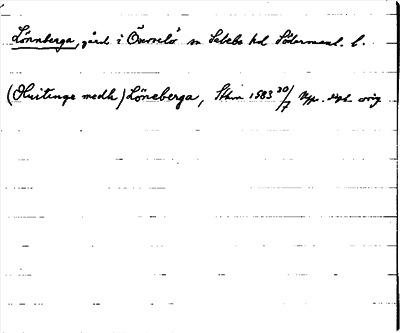 Lönnberga, gård i Överselö sn Selebo hd Södermanl. l.
(Huitinge medh) Löneberga, Sthm 1583 30/7 Np. sigh orig